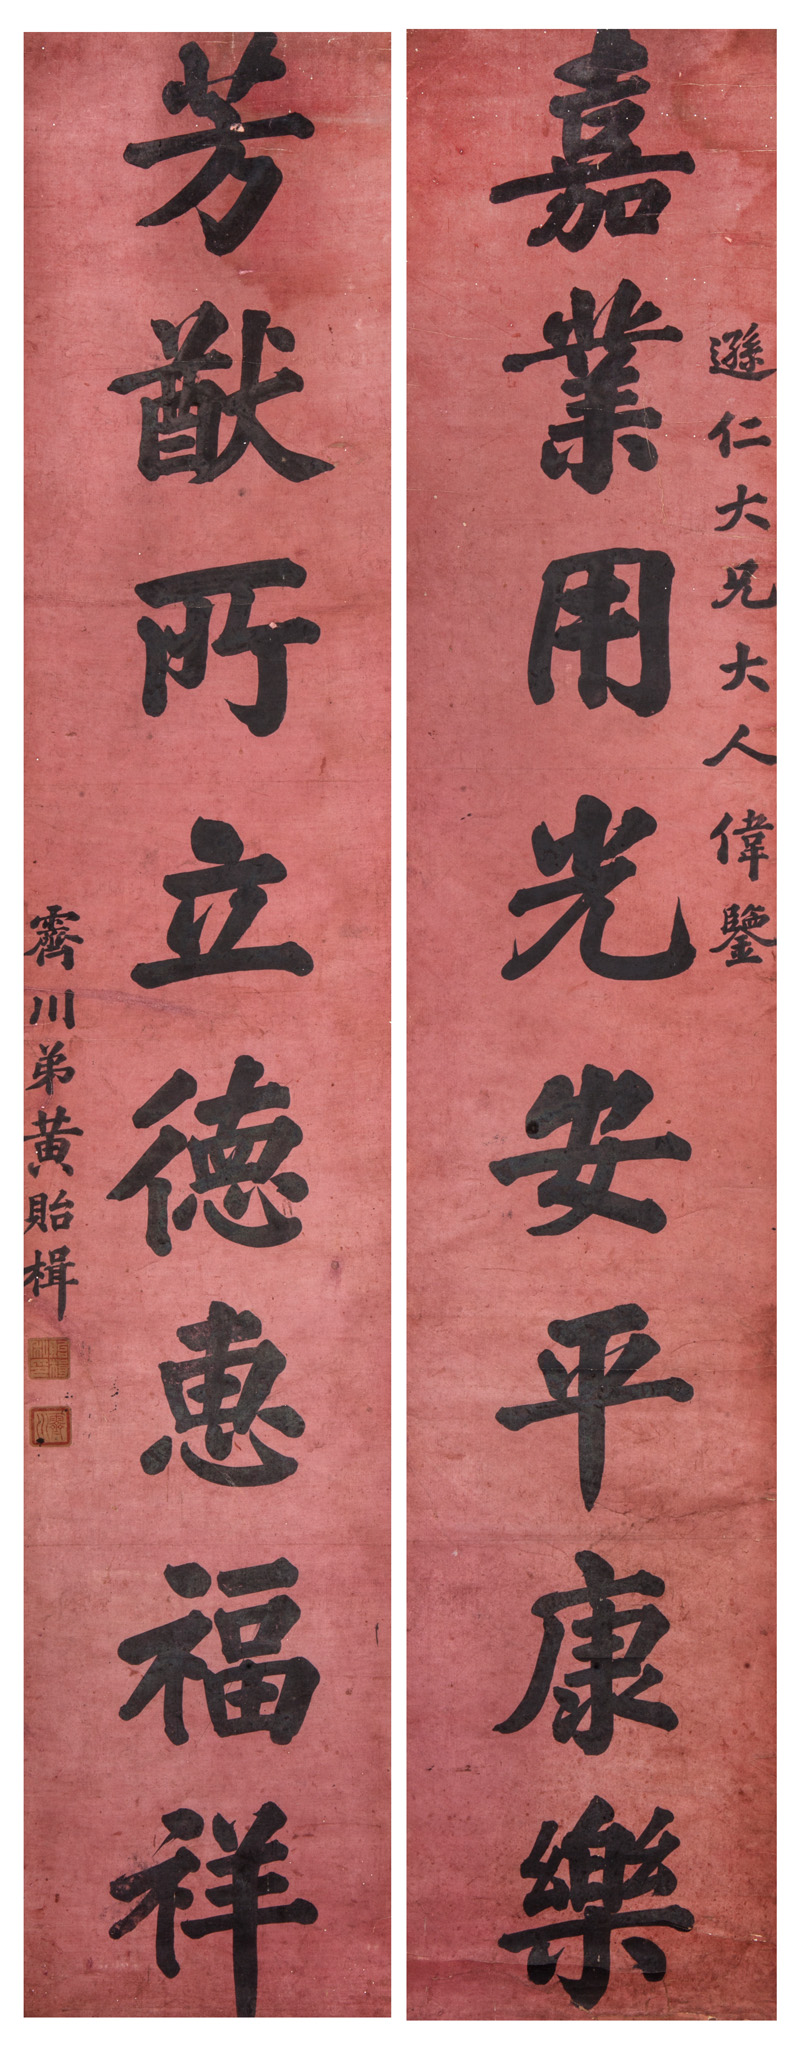 遜仁大兄大人偉鑒
嘉業用光安平康樂
芳猷所立德惠福祥
霽川弟黃貽楫